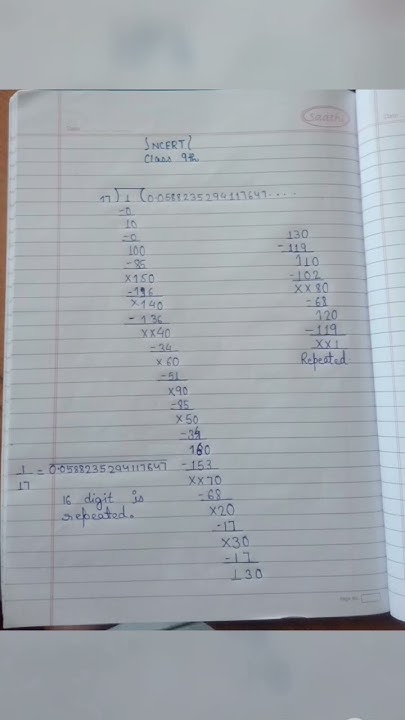 Saathi
Date
NCERT
Class 9th
17) 1 (0.0588235294117647....
-0
10
-0
100
-85
×150
-136
×140
-136
××40
-34
×60
-51
×90
-85
×50
-34
160
-153
××70
-68
×20
-17
×30
-17
130
130
-119
110
-102
××80
-68
120
-119
××1
Repeated
1/17 = 0.0588235294117647
16 digit is
repeated.
Page No.